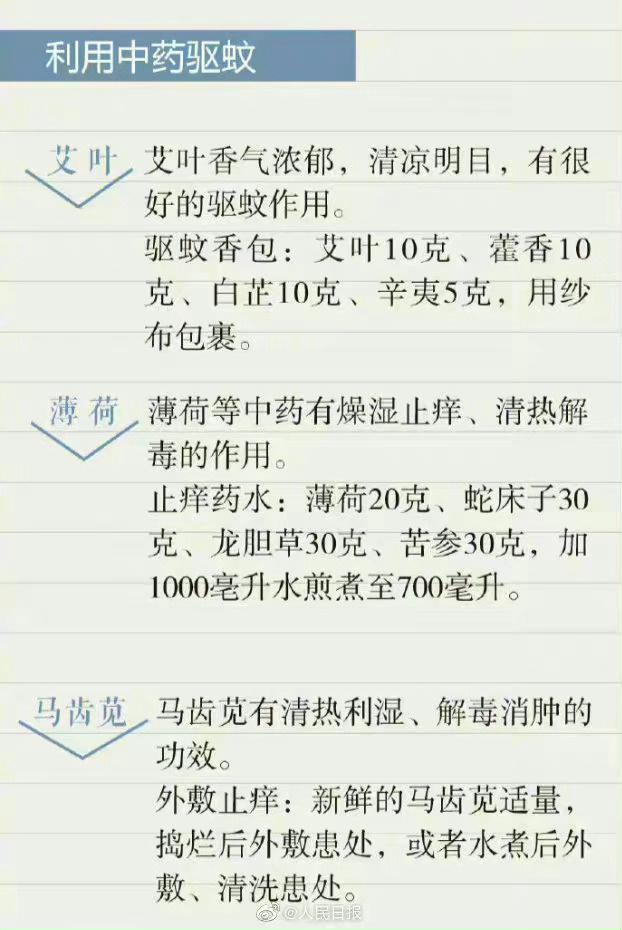 利用中药驱蚊
艾叶
艾叶香气浓郁，清凉明目，有很
好的驱蚊作用。
驱蚊香包：艾叶10克、藿香10
克、白芷10克、辛夷5克，用纱
布包裹。
薄荷
薄荷等中药有燥湿止痒、清热解
毒的作用。
止痒药水：薄荷20克、蛇床子30
克、龙胆草30克、苦参30克，加
1000毫升水煎煮至700毫升。
马齿苋
马齿苋有清热利湿、解毒消肿的
功效。
外敷止痒：新鲜的马齿苋适量，
捣烂后外敷患处，或者水煮后外
敷、清洗患处。
@人民日报